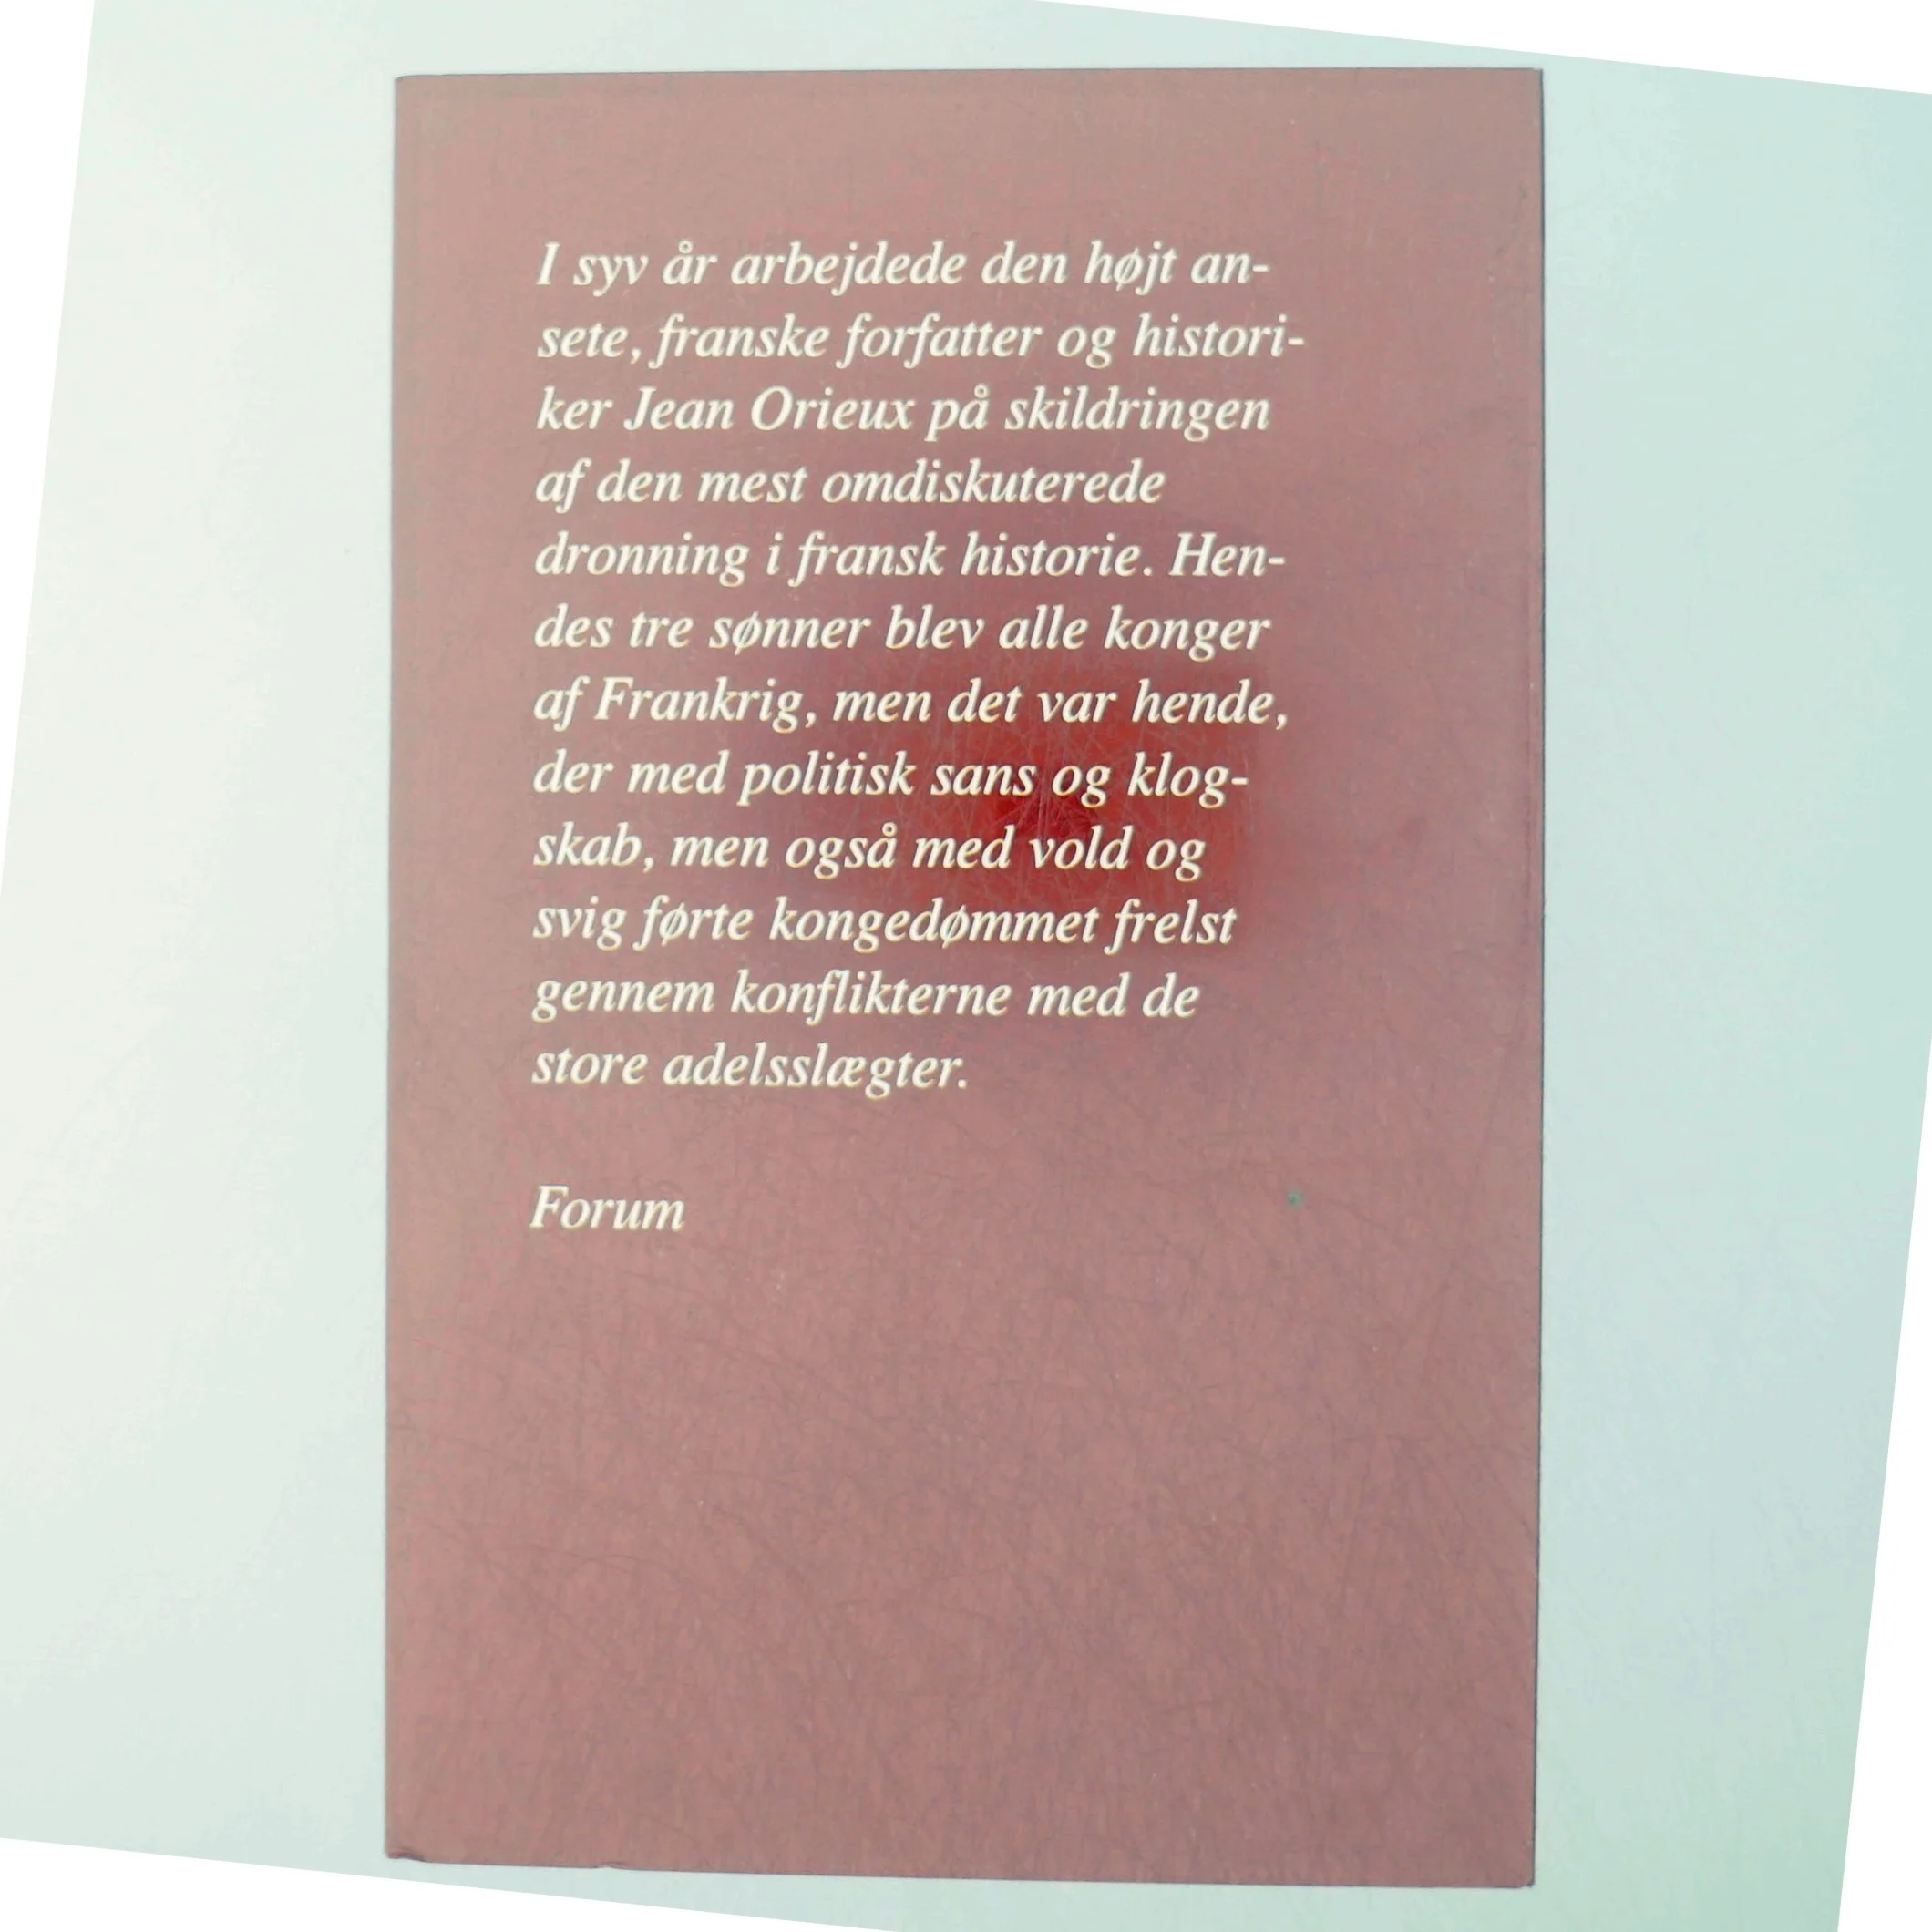 I syv år arbejdede den højt an-
sete, franske forfatter og histori-
ker Jean Orieux på skildringen
af den mest omdiskuterede
dronning i fransk historie. Hen-
des tre sønner blev alle konger
af Frankrig, men det var hende,
der med politisk sans og klog-
skab, men også med vold og
svig førte kongedømmet frelst
gennem konflikterne med de
store adelsslægter.
Forum